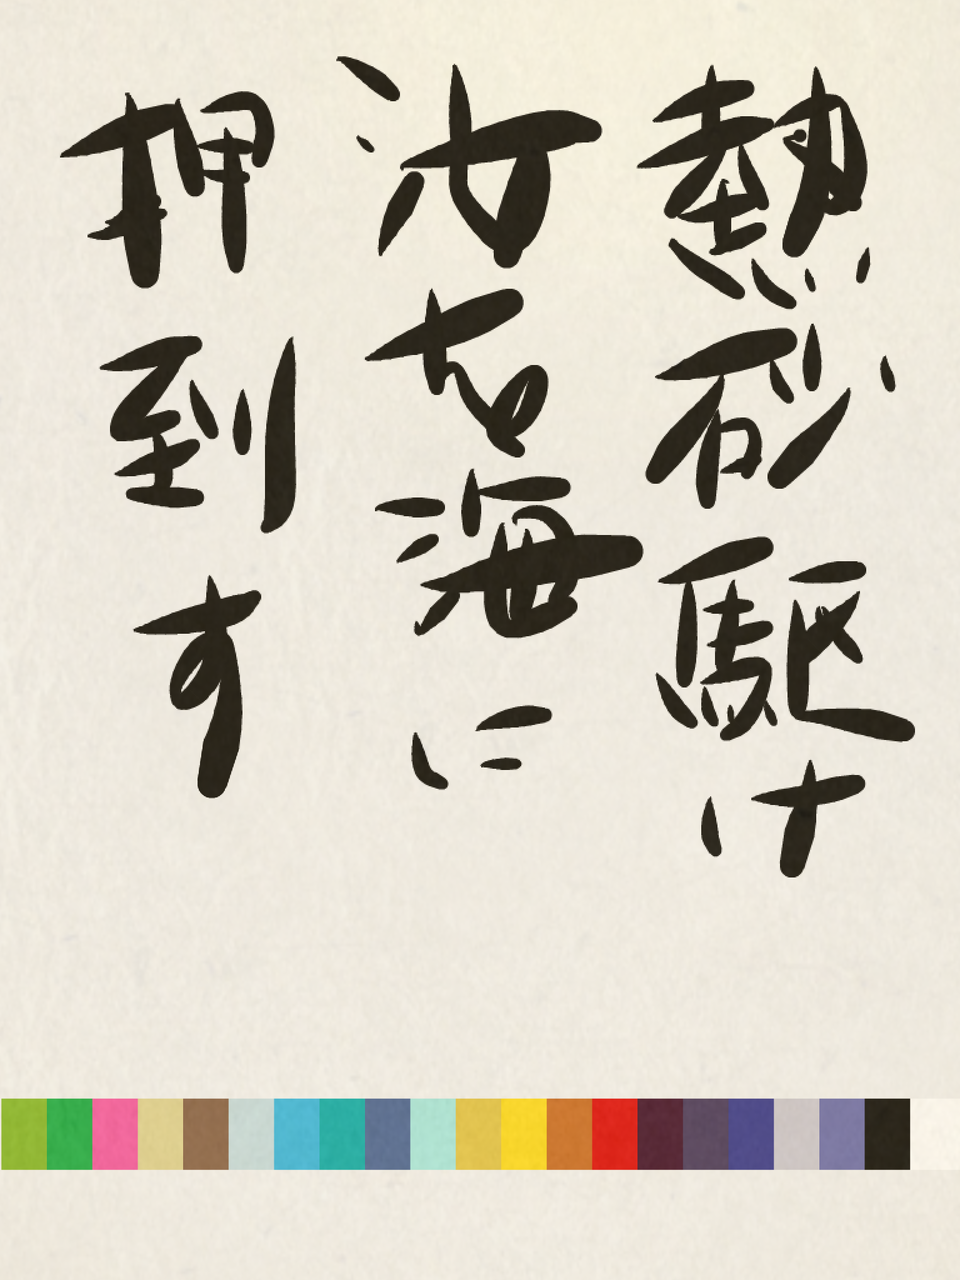 熱砂駆け
汝を海に
押到す